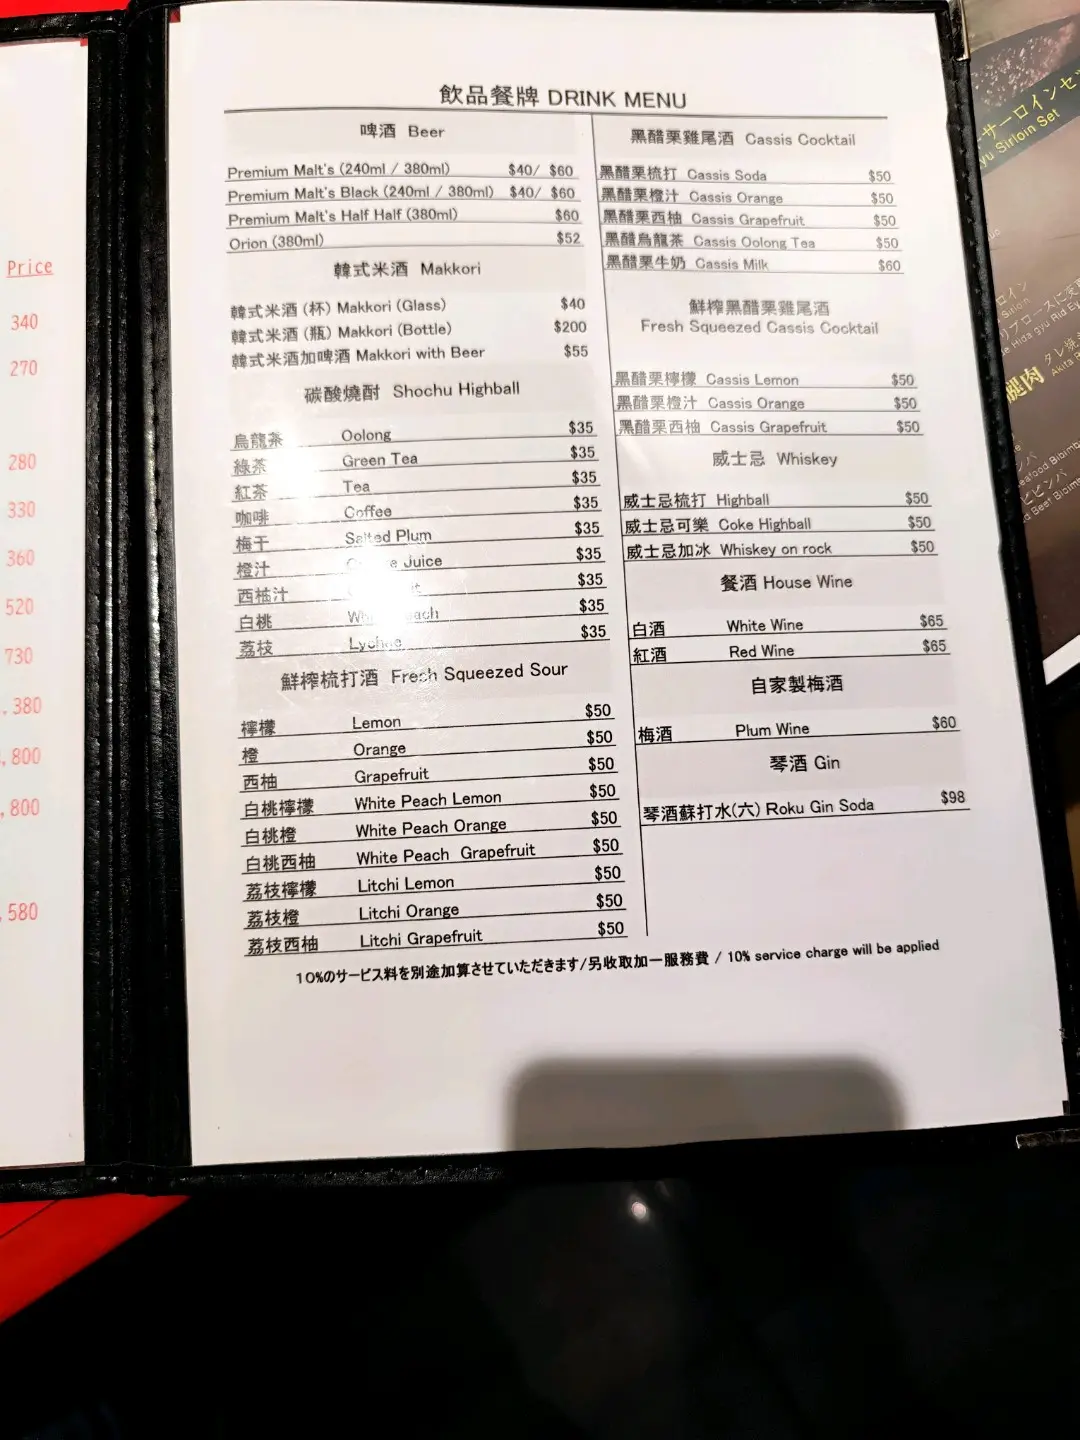 飲品餐牌 DRINK MENU
啤酒 Beer
Premium Malt's (240ml / 380ml) $40/ $60
Premium Malt's Black (240ml / 380ml) $40/ $60
Premium Malt's Half Half (380ml) $60
Orion (380ml) $52
韓式米酒 Makkori
韓式米酒 (杯) Makkori (Glass) $40
韓式米酒 (瓶) Makkori (Bottle) $200
韓式米酒加啤酒 Makkori with Beer $55
碳酸燒酎 Shochu Highball
烏龍茶 Oolong $35
綠茶 Green Tea $35
紅茶 Tea $35
咖啡 Coffee $35
梅干 Salted Plum $35
橙汁 Juice $35
西柚汁 $35
白桃 $35
荔枝 Lychee $35
鮮榨梳打酒 Fresh Squeezed Sour
檸檬 Lemon $50
橙 Orange $50
西柚 Grapefruit $50
白桃檸檬 White Peach Lemon $50
白桃橙 White Peach Orange $50
白桃西柚 White Peach Grapefruit $50
荔枝檸檬 Litchi Lemon $50
荔枝橙 Litchi Orange $50
荔枝西柚 Litchi Grapefruit $50
黑醋栗雞尾酒 Cassis Cocktail
黑醋栗梳打 Cassis Soda $50
黑醋栗橙汁 Cassis Orange $50
黑醋栗西柚 Cassis Grapefruit $50
黑醋烏龍茶 Cassis Oolong Tea $50
黑醋栗牛奶 Cassis Milk $60
鮮榨黑醋栗雞尾酒
Fresh Squeezed Cassis Cocktail
黑醋栗檸檬 Cassis Lemon $50
黑醋栗橙汁 Cassis Orange $50
黑醋栗西柚 Cassis Grapefruit $50
威士忌 Whiskey
威士忌梳打 Highball $50
威士忌可樂 Coke Highball $50
威士忌加冰 Whiskey on rock $50
餐酒 House Wine
白酒 White Wine $65
紅酒 Red Wine $65
自家製梅酒
梅酒 Plum Wine $60
琴酒 Gin
琴酒蘇打水(六) Roku Gin Soda $98
10%のサービス料を別途加算させていただきます/另收取加一服務費 / 10% service charge will be applied
Price
340
270
280
330
360
520
730
380
,800
,800
,580
サーロインセッ
Sirloin Set
腿肉